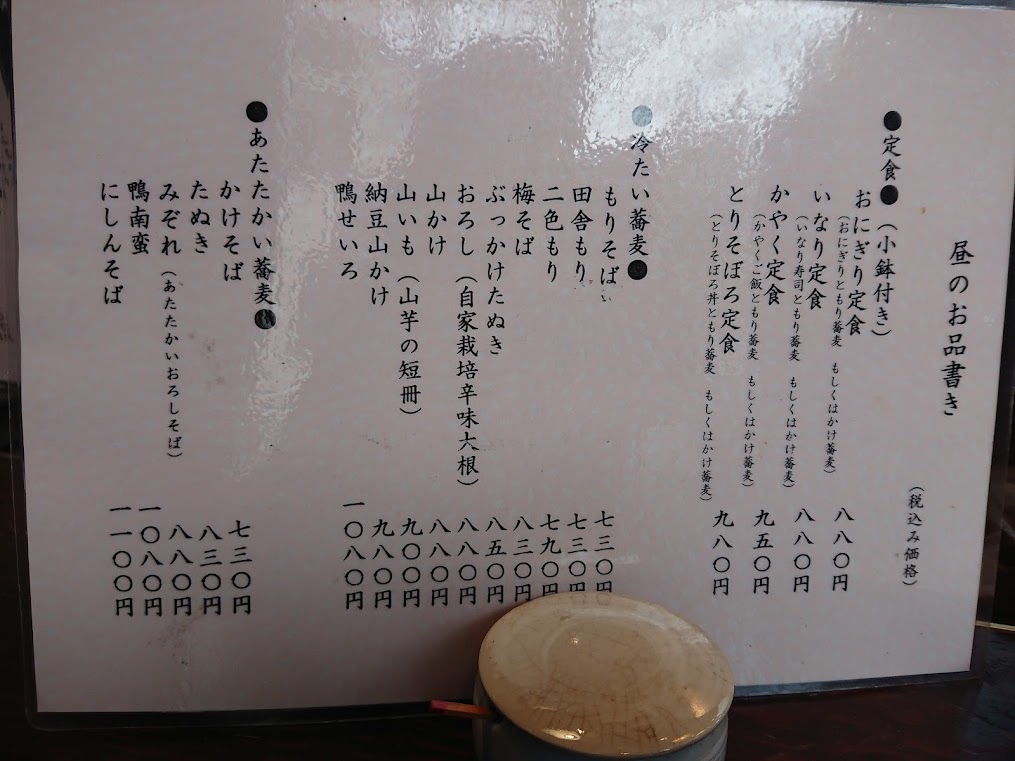 昼のお品書き
（税込み価格）
●定食●（小鉢付き）
おにぎり定食 八八〇円
（おにぎりともり蕎麦 もしくはかけ蕎麦）
いなり定食 八八〇円
（いなり寿司ともり蕎麦 もしくはかけ蕎麦）
かやく定食 九五〇円
（かやくご飯ともり蕎麦 もしくはかけ蕎麦）
とりそぼろ定食 九八〇円
（とりそぼろ丼ともり蕎麦 もしくはかけ蕎麦）
●冷たい蕎麦●
もりそば 七三〇円
田舎もり 七三〇円
二色もり 七九〇円
梅そば 八三〇円
ぶっかけたぬき 八五〇円
おろし（自家栽培辛味大根） 八八〇円
山かけ 八八〇円
山いも（山芋の短冊） 九〇〇円
納豆山かけ 九八〇円
鴨せいろ 一〇八〇円
●あたたかい蕎麦●
かけそば 七三〇円
たぬき 八三〇円
みぞれ（あたたかいおろしそば） 八八〇円
鴨南蛮 一〇八〇円
にしんそば 一一〇〇円